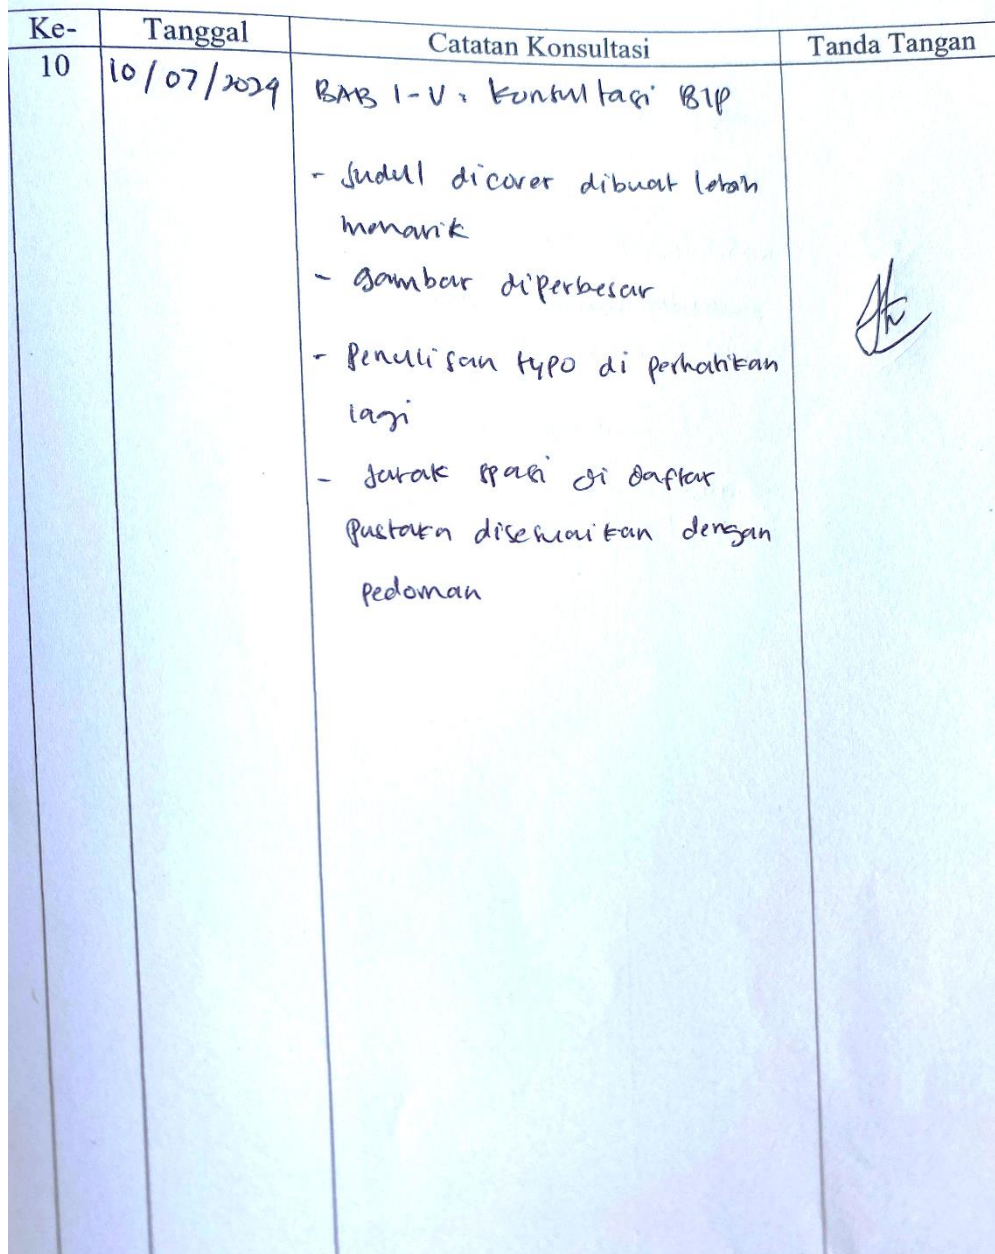 Ke- Tanggal Catatan Konsultasi Tanda Tangan
10 10/07/2024 BAB I-V : Konsultasi BIP
- Judul dicover dibuat lebih
menarik
- gambar diperbesar
- Penulisan typo di perhatikan
lagi
- Jarak spasi di daftar
Pustaka disesuaikan dengan
pedoman